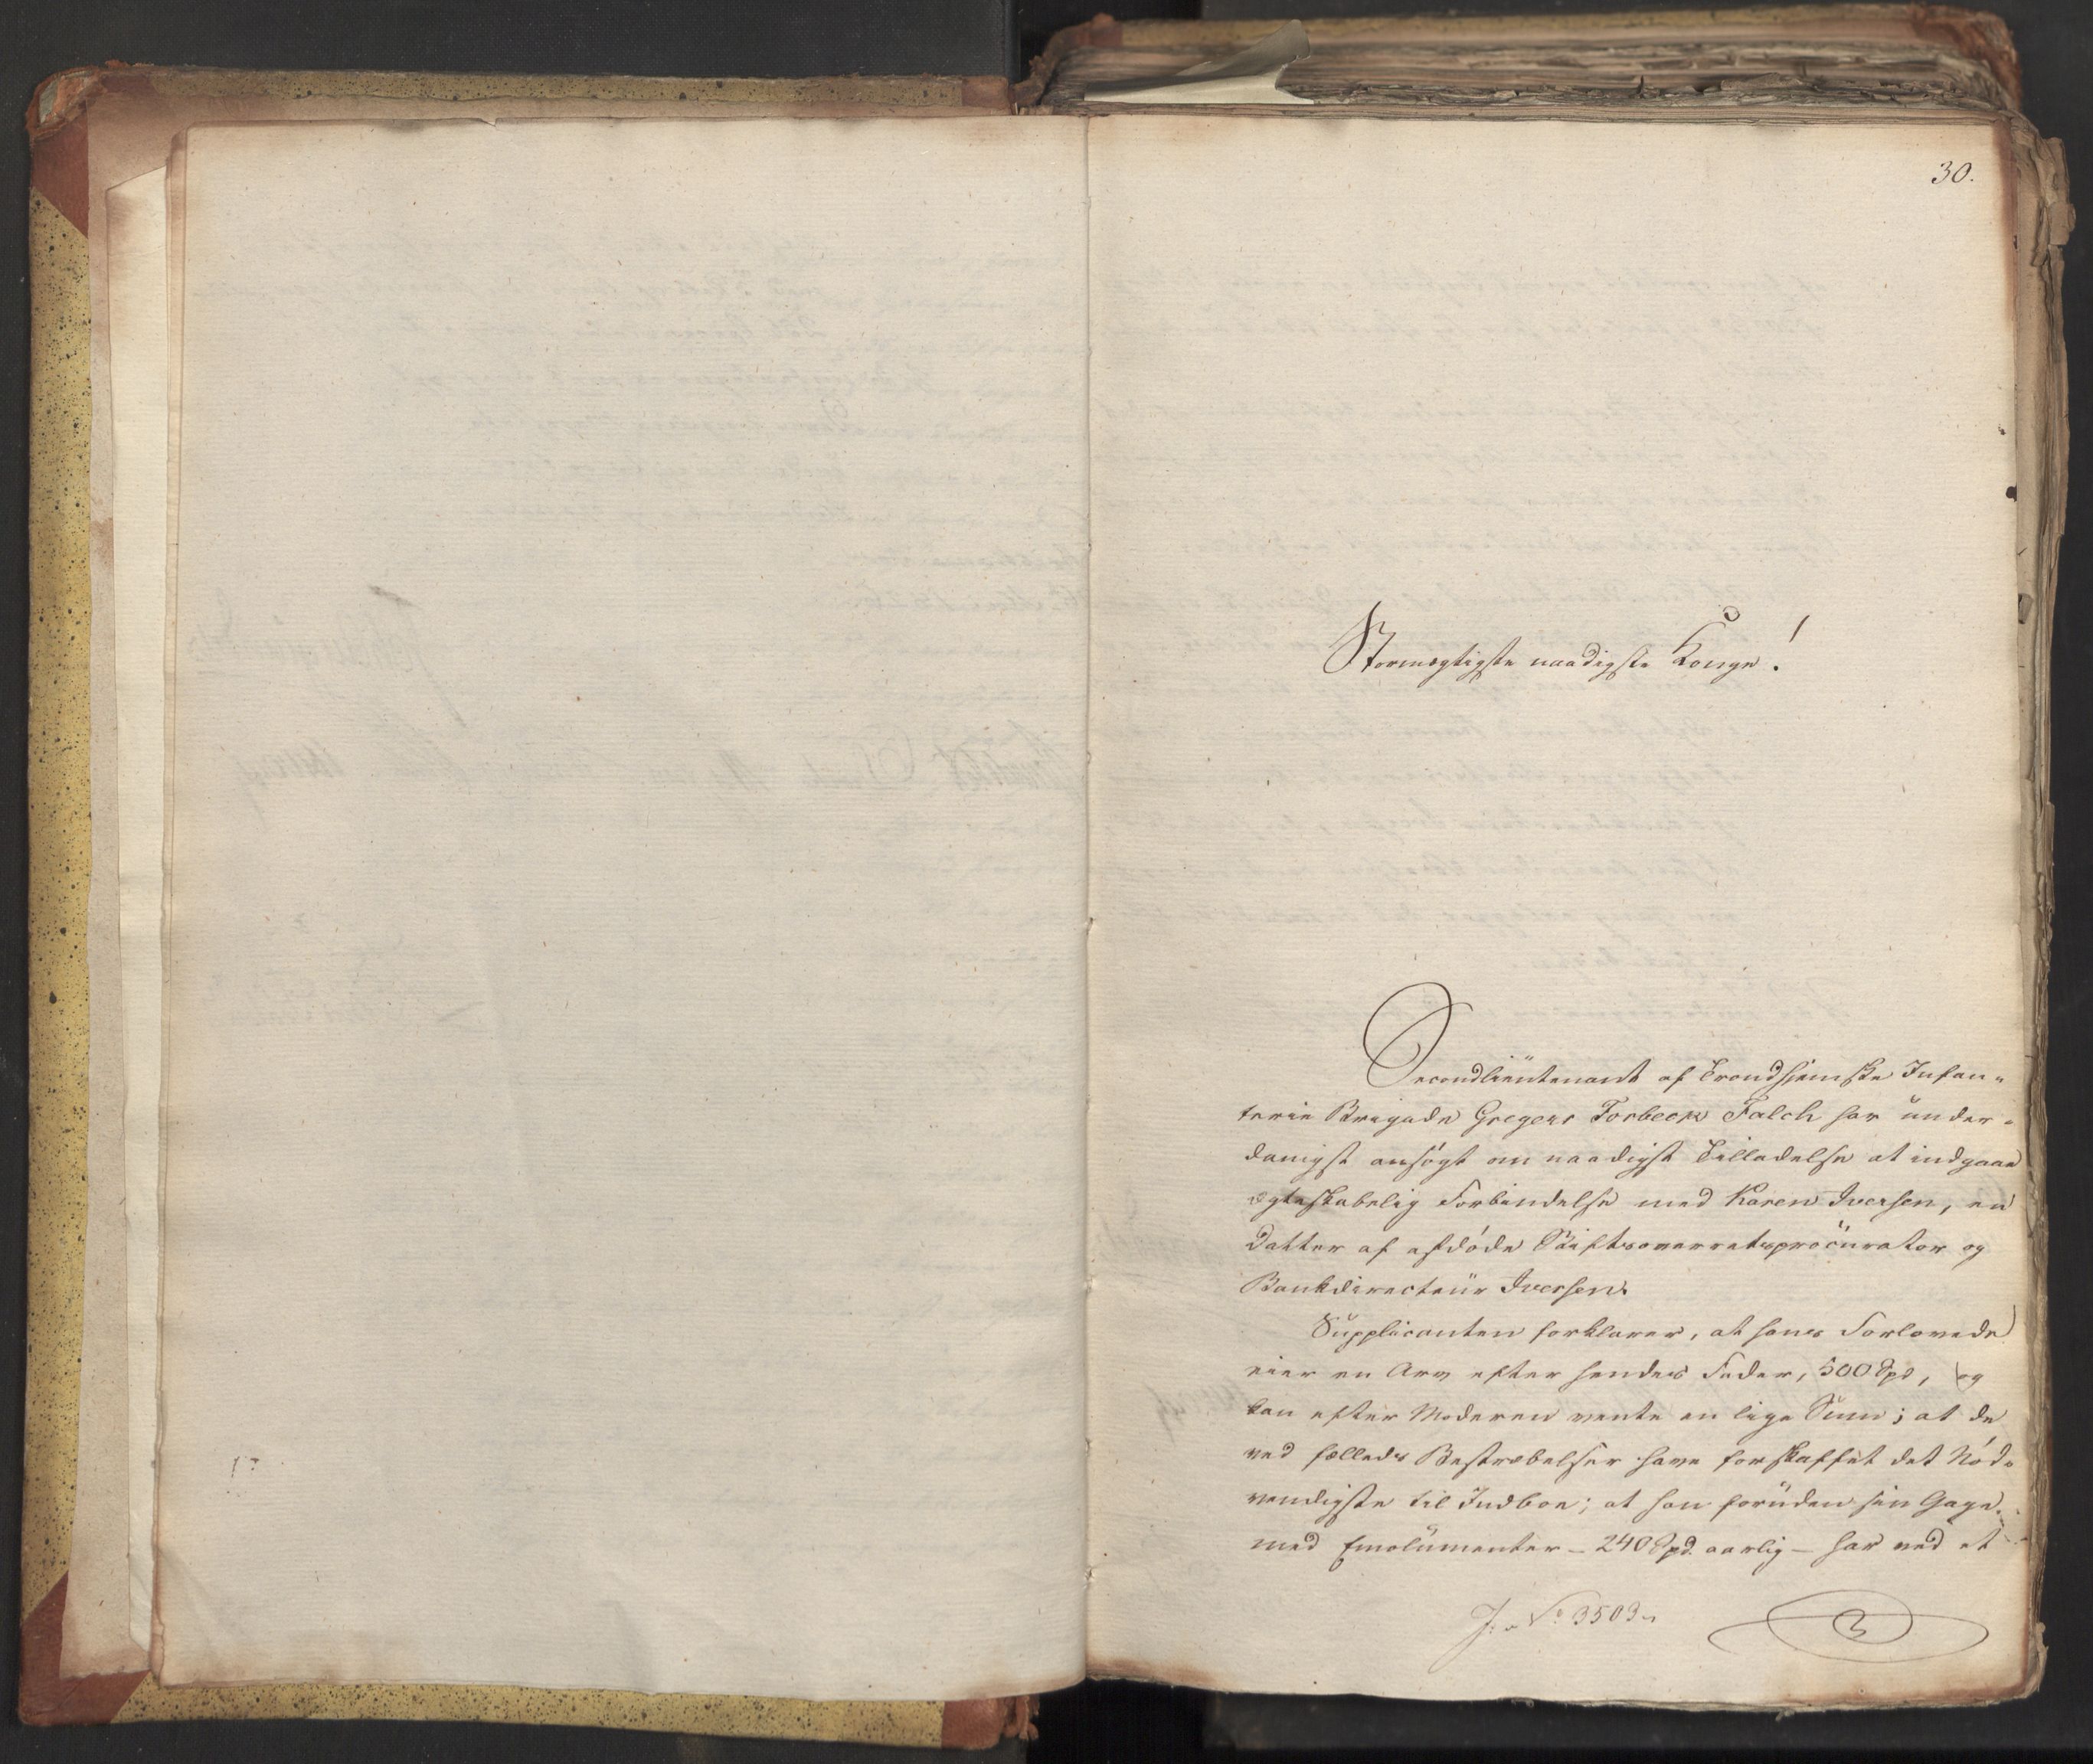 30.
Stormægtigste naadigste Konge!
Secondlieutenant af Trondhjemske Infan-
terie Brigade Gregers Torbeck Falch har under-
danigst ansøgt om naadigst Tilladelse at indgaae
ægteskabelig Forbindelse med Karen Iversen, en
Datter af afdøde Stiftsoverretsprocurator og
Bankdirecteur Iversen.
Supplicanten forklarer, at hans Forlovede
eier en Arv efter hendes Fader, 500 Spd, og
kan efter Moderen vente en lige Sum; at de
ved fælleds Bestræbelser have forskaffet det Nød-
vendigste til Indboe; at han foruden sin Gage
med Emolumenter - 240 Spd. aarlig - har ved et
J. No 3503.